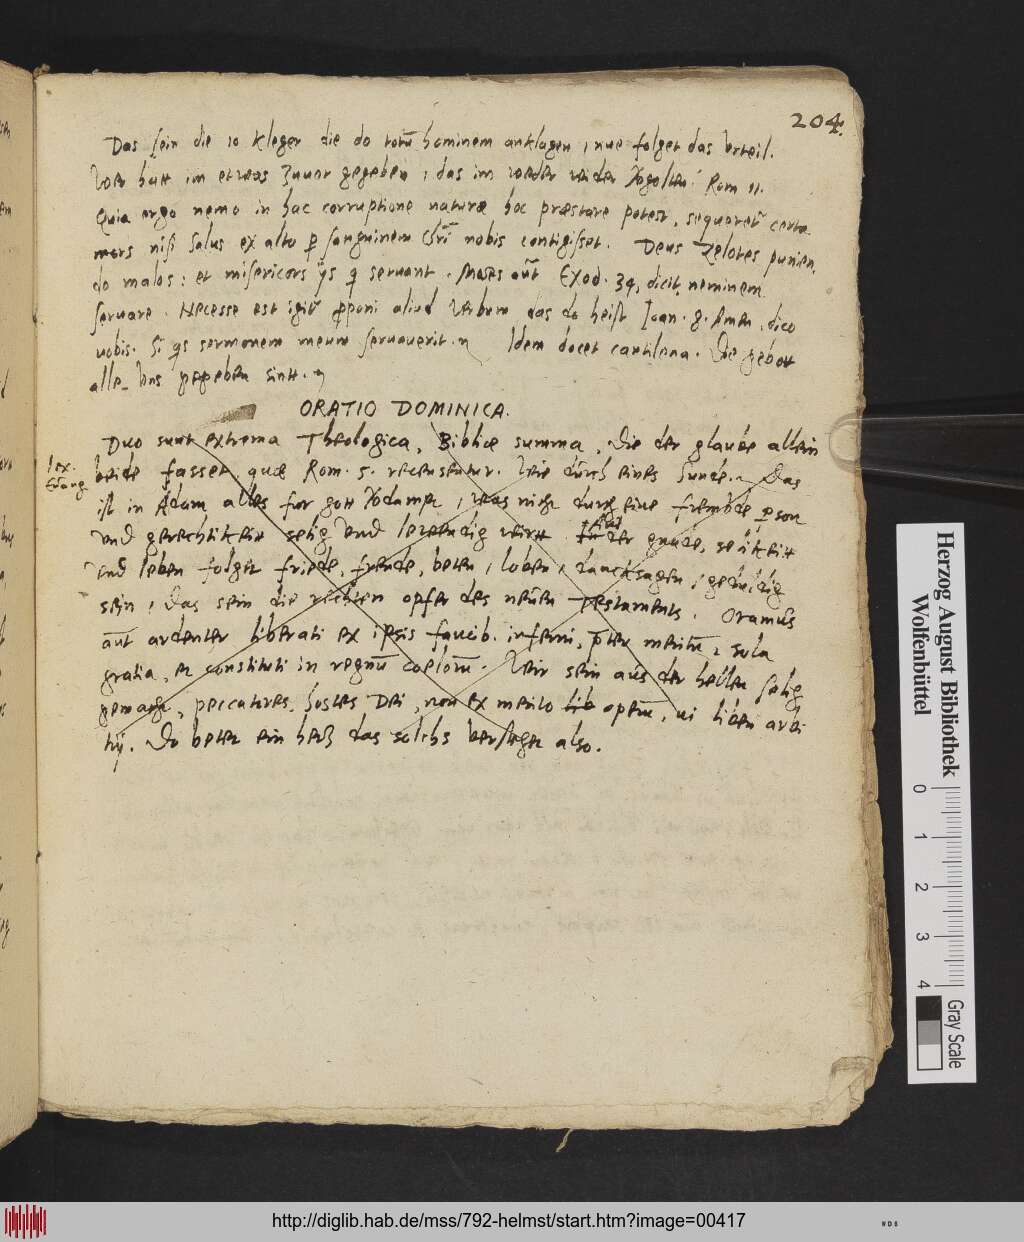 204.
Das sein die 10 kleger die do totū hominem anklagen, nue folget das Vrteil.
Wer hatt im etwas Zuuor gegeben, das im werder wider Rom 11.
Quia ergo nemo in hac corruptione naturæ hoc præstare potest, sequeretꝰ certa
mors nisi salus ex alto p sanguinem Chrī nobis contigisset. Deus Zelotes punien,
do malos: et misericors ijs q seruant. Moses aūt Exod. 34, dicit, neminem
seruare. Necesse est igiť pponi aliud verbum das do heist Ioan. 8. Amen, dico
uobis. Si qs sermonem meum seruauerit. Idem docet cantilena. Die gebott
alle Vns gegeben sintt.
ORATIO DOMINICA.
Duo sunt extrema Theologica, Biblicæ summa, die der glaube allein
lex.
Euang.
beide fasset, quæ Rom. 5. recensentur. Wie durch eines Sunde. Das
ist in Adam alles fur gott, was nicht durch eine frembde pson
vnd gerechtikeit selig vnd lebendig wirtt. der gnade, seikeitt
vnd leben folget friede, freude, beten, loben, dancksagen, gedultig
sein, Das sein die rechten opfer des neuen Testaments. Oramus
aūt ardenter liberati ex ipsis faucib. inferni, pter meritū, sola
gratia, et constituti in regnū coelorū. Wir sein aus der hellen selig
gemacht, peccatores, hostes Dei, non ex merito operū, ui liberi arbi
trij. Do betet ein hertz das solchs verstehet also.
Herzog August Bibliothek
Wolfenbüttel
0 1 2 3 4
Gray Scale
http://diglib.hab.de/mss/792-helmst/start.htm?image=00417